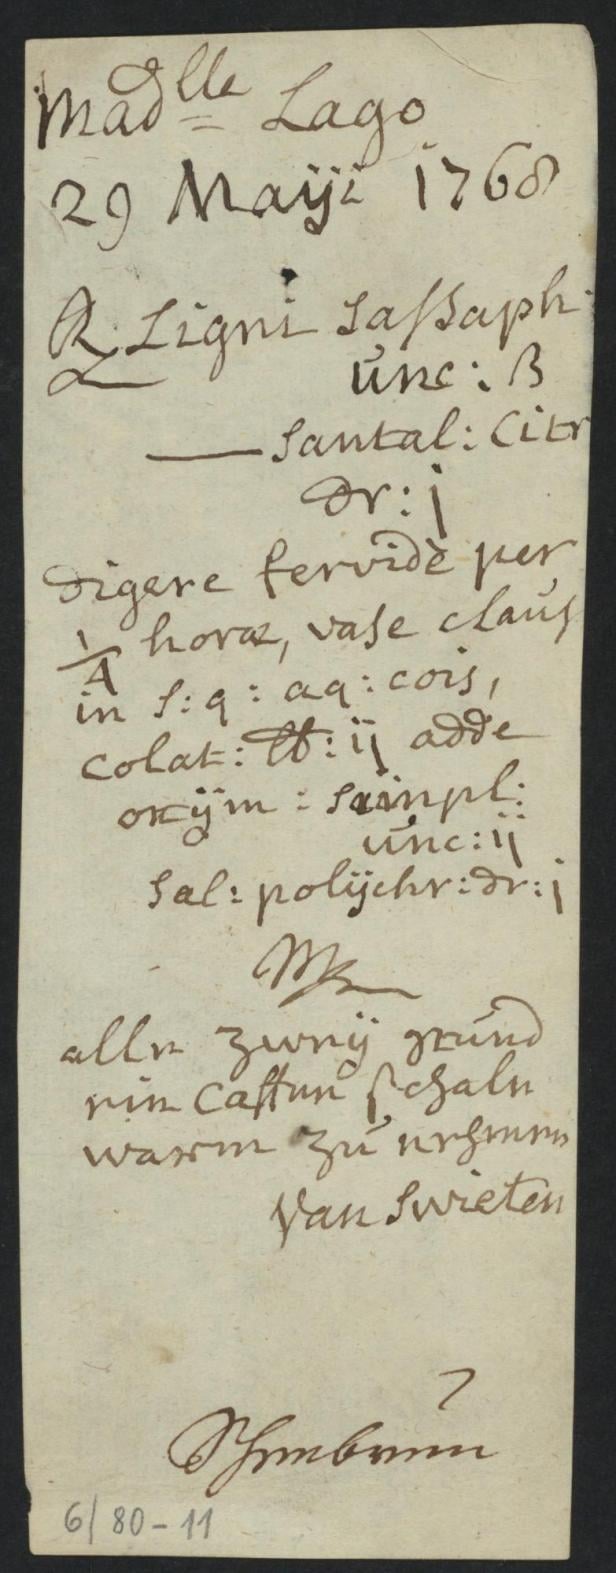 Mad^lle Lago
29 Maiji 1768
℞ Ligni sassaph:
unc: ß
— Santal: Citr
dr: j
digere fervide per
1/4 horae, vase claus
in s: q: aq: cois,
colat: ℔: ij adde
oxÿm: simpl:
unc: ij
sal: polÿchr: dr: j
M
alle zweÿ stund
ein Caffeé schale
warm zu nehmen
Van Swieten
Schenbrunn
6/80-11